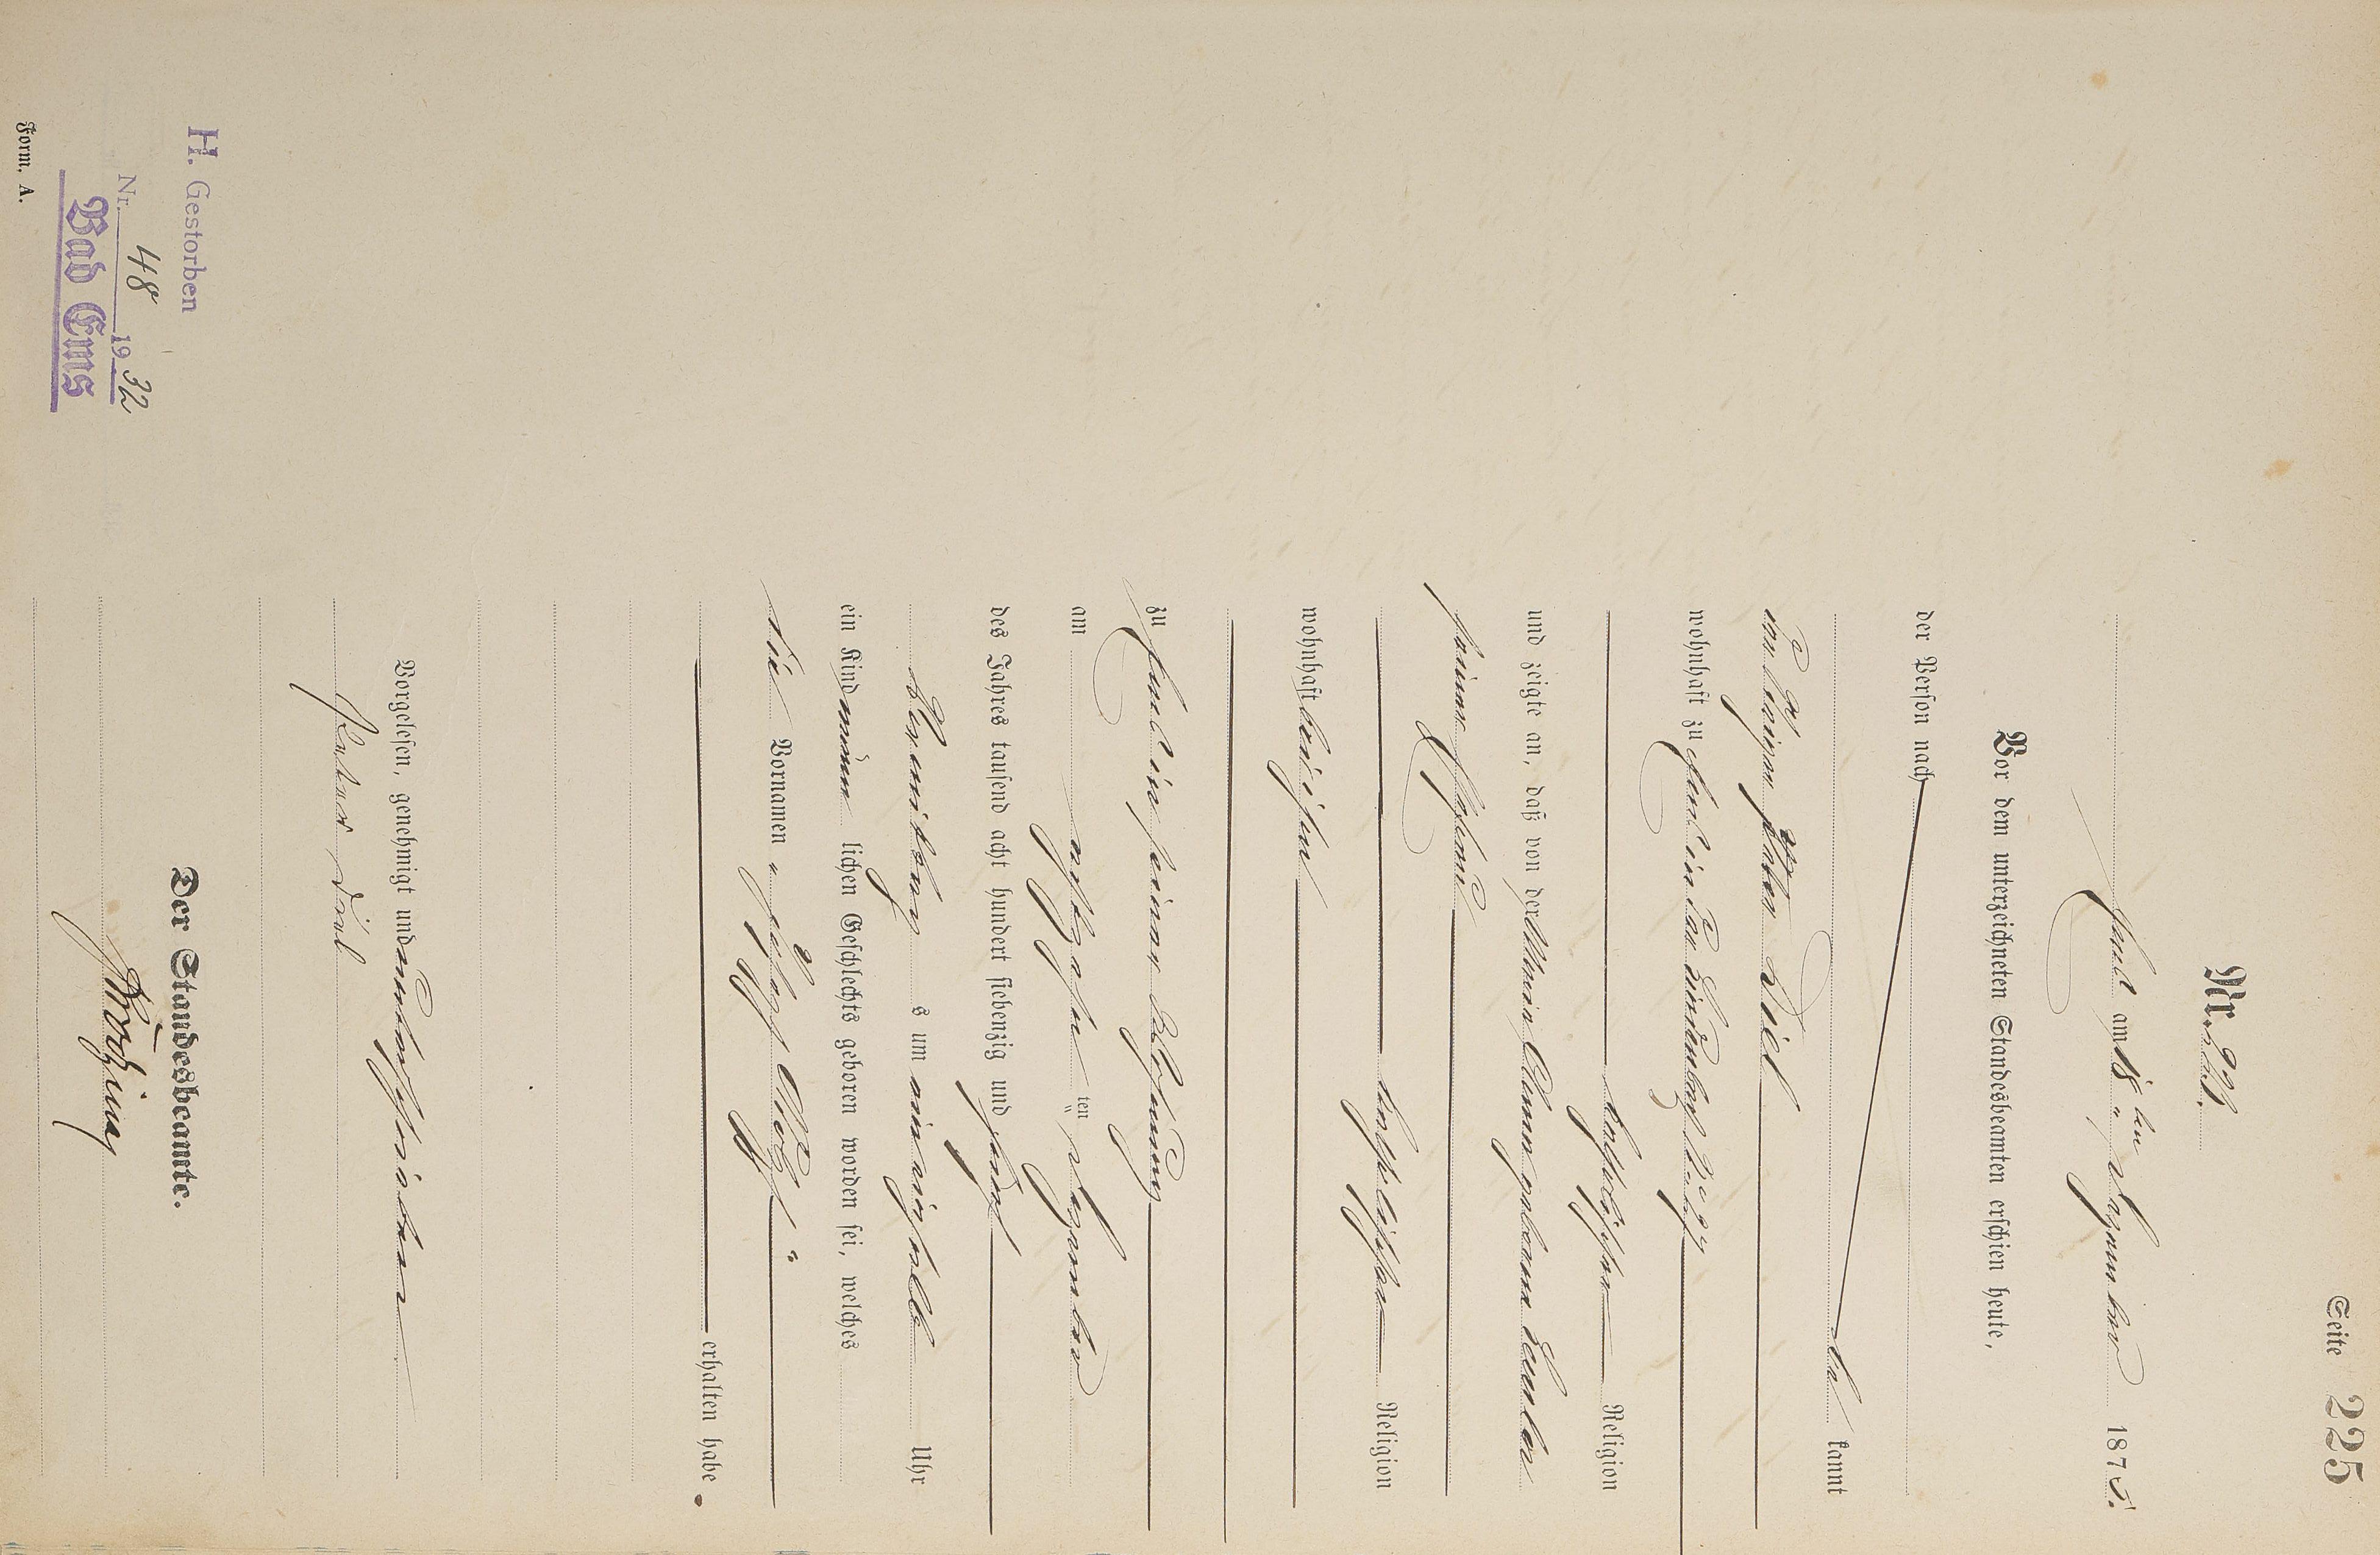 Seite 225
Nr. 221.
Ems am 18ten Dezember 1875.
Vor dem unterzeichneten Standesbeamten erschien heute,
der Person nach
be kannt
der Peter Diel
wohnhaft zu Ems in der
katholischer Religion
und zeigte an, daß von der Anna geborene
seiner Ehefrau
katholischer Religion
wohnhaft bei ihm
zu Ems in seiner Wohnung
am achtzehnten Dezember
des Jahres tausend acht hundert siebenzig und fünf
Vormittags um ein einhalb Uhr
ein Kind männlichen Geschlechts geboren worden sei, welches
die Vornamen „Joseph Adolph“
erhalten habe.
Vorgelesen, genehmigt und unterschrieben
Peter Diel
Der Standesbeamte.
H. Gestorben
Nr. 48 1932
Bad Ems
Form. A.